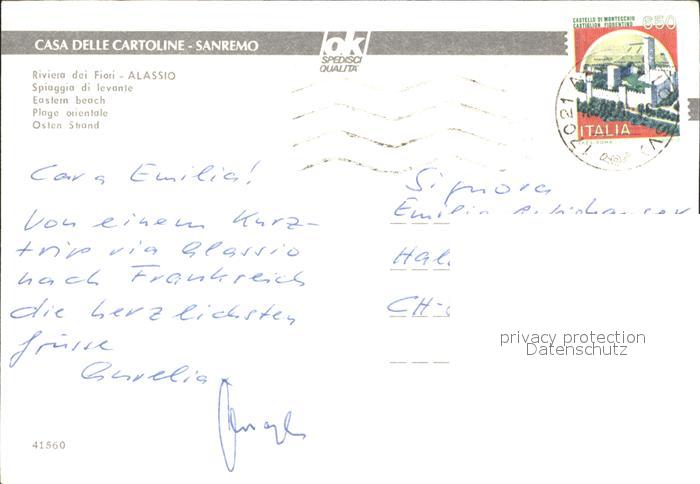 CASA DELLE CARTOLINE - SANREMO
ok
SPEDISCI
QUALITÀ
CASTELLO DI MONTECCHIO
CASTIGLION FIORENTINO
650
ITALIA
17021
Riviera dei Fiori - ALASSIO
Spiaggia di levante
Eastern beach
Plage orientale
Osten Strand
Cara Emilia!
Von einem Kurz-
trip via Alassio
nach Frankreich
die herzlichsten
Grüsse
Aurelia
Signora
Emilia
CH-
privacy protection
Datenschutz
41560